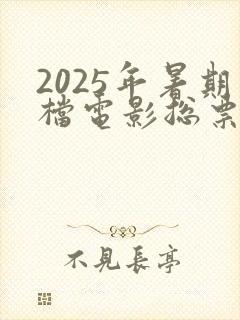 2025年暑期
檔電影總票
不見長亭